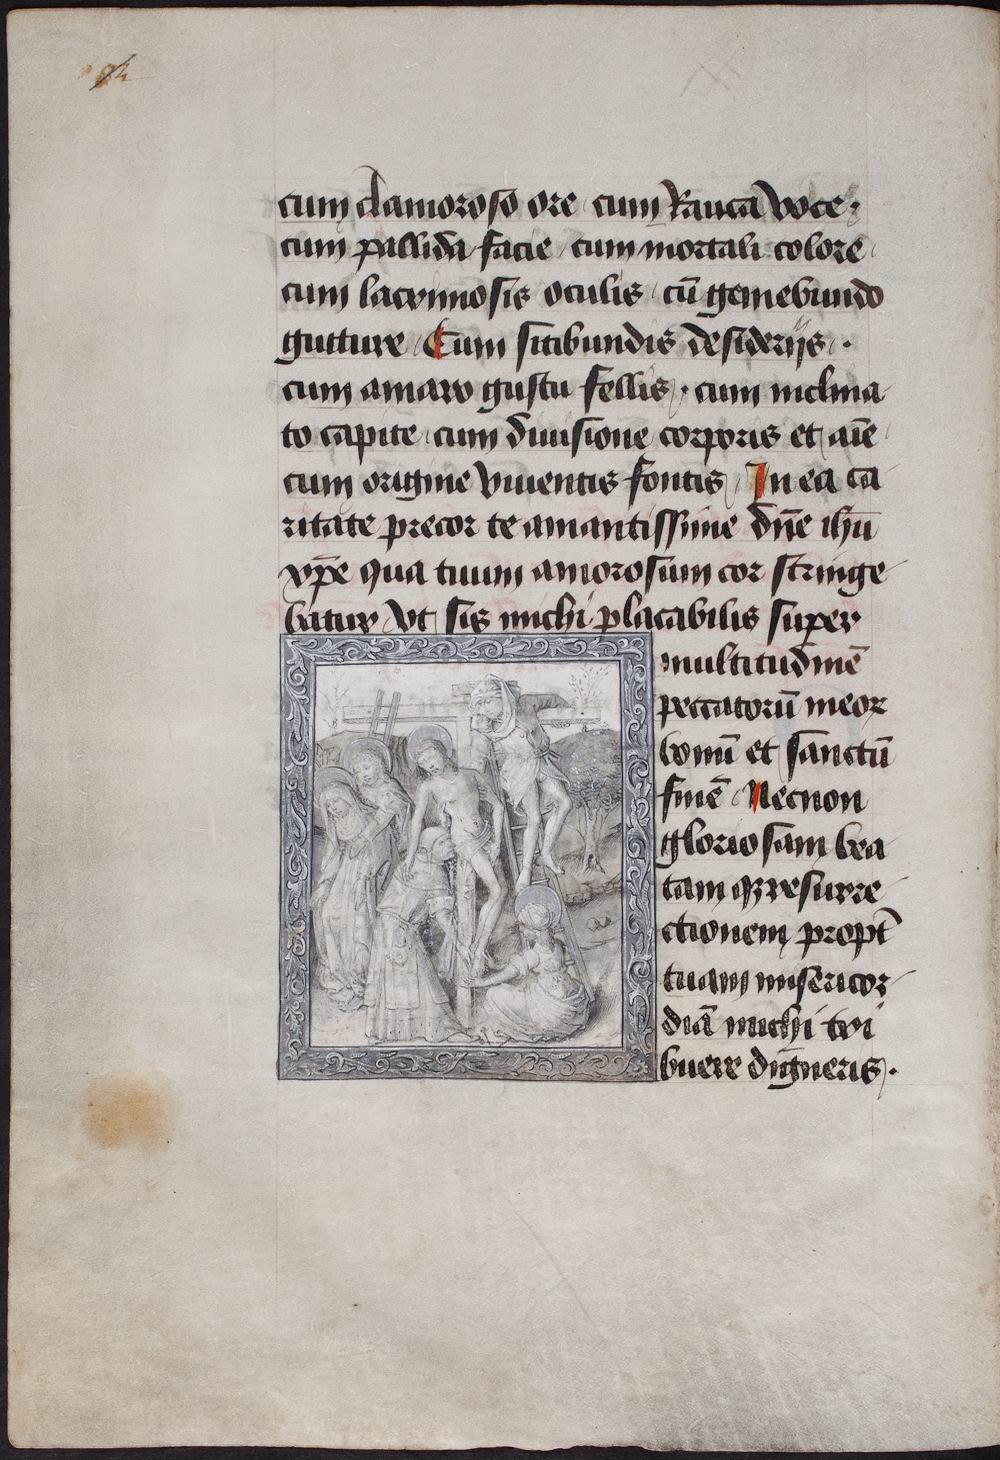 cum clamoroso ore cum Rauca voce·
cum pallida facie cum mortali colore
cum lacrimosis oculis cū gemebundo
gutture Cum sitibundis desiderijs·
cum amaro gustu fellis· cum inclina
to capite cum diuisione corporis et aīe
cum origine viuentis fontis In ea ca
ritate precor te amantissime dn̄e ihū
xp̄e qua tuum amorosum cor stringe
batur Vt sis michi placabilis super
multitudinē
peccatorū meoꝝ
bonū et sanctū
finē Necnon
gloriosam bea
tam qꝫ resurre
ctionem propt̄
tuam misericor
diā michi tri
buere digneris·